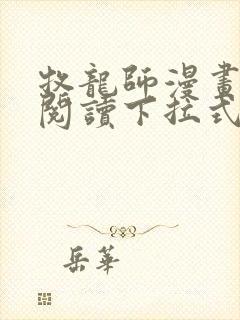 牧龍師漫畫
閱讀下拉式
岳華